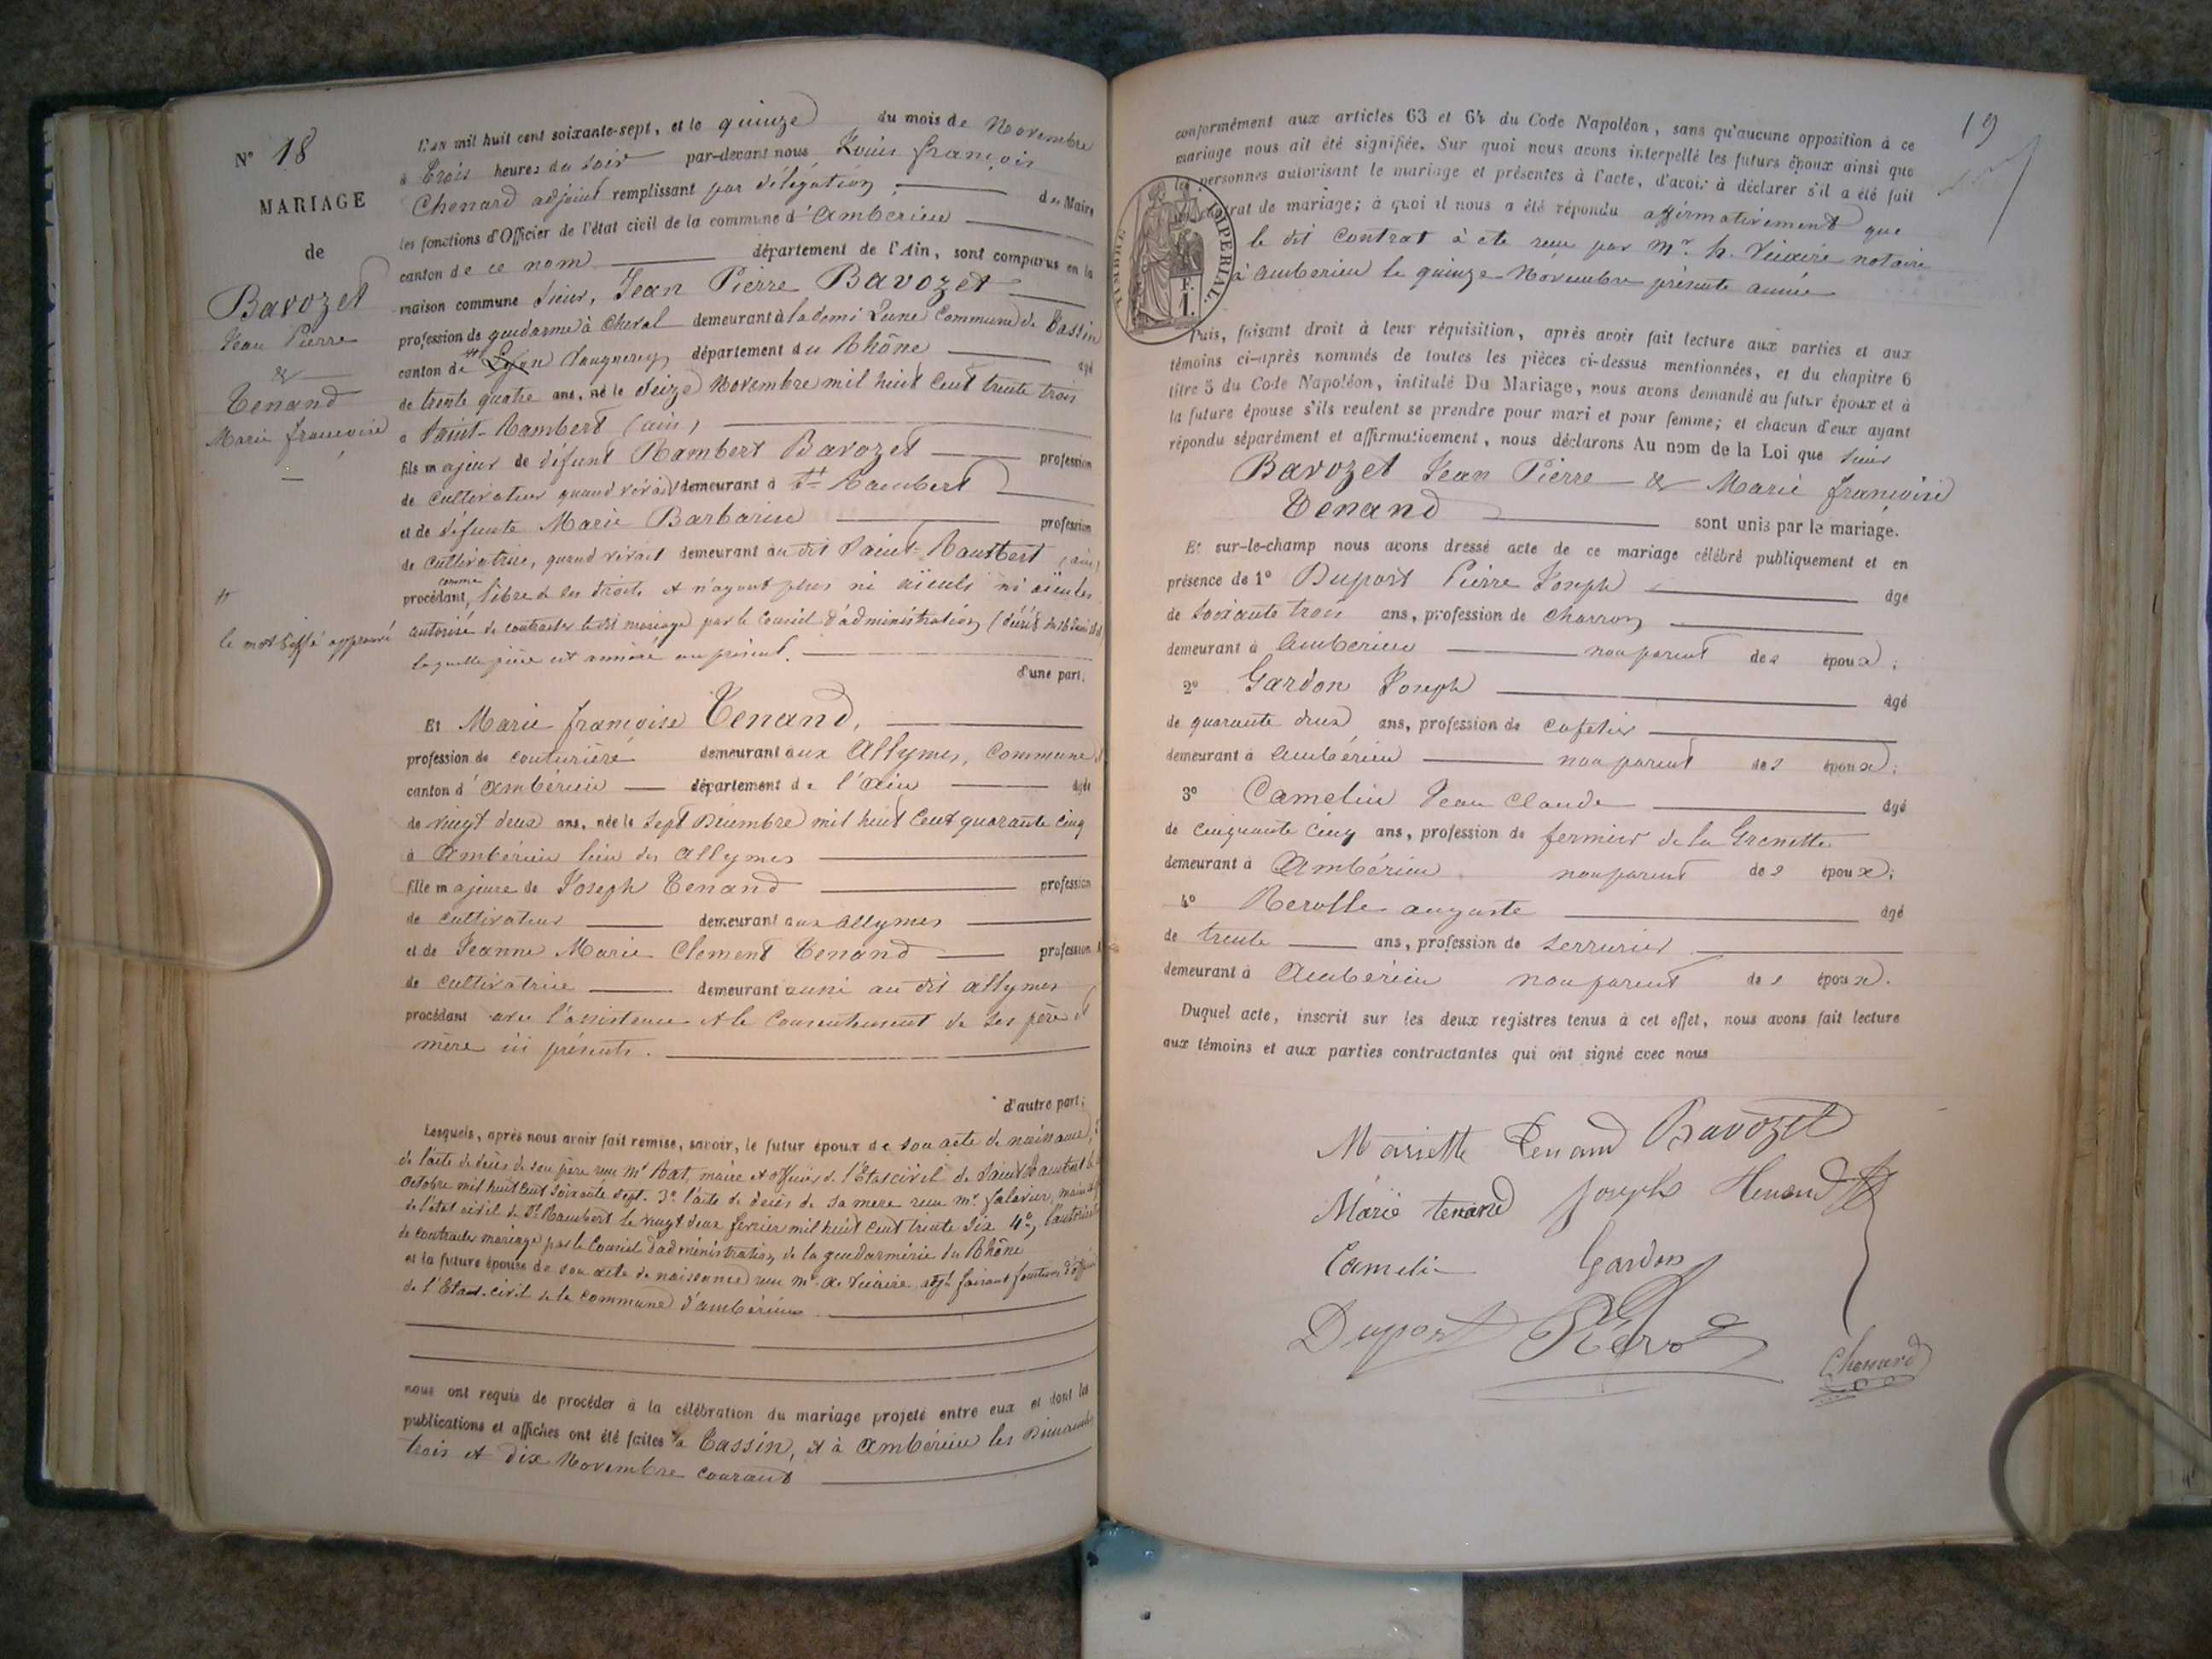 N° 18
MARIAGE
de
Bavozet
Jean Pierre
&
Tenand
Marie françoise
le mot biffé approuvé
L'an mil huit cent soixante-sept, et le quinze du mois de Novembre
à trois heures du soir par-devant nous Louis françois
Chenard adjoint remplissant par délégation, du Maire
les fonctions d'Officier de l'état civil de la commune d'Ambérieu
canton de ce nom département de l'Ain, sont comparus en la
maison commune Sieur, Jean Pierre Bavozet
profession de gendarme à Cheval demeurant à la demi Lune Commune de Tassin
canton de Lyon Vaugneray département du Rhône agé
de trente quatre ans, né le Seize Novembre mil huit Cent trente trois
à Saint-Rambert (ain)
fils majeur de défunt Rambert Bavozet profession
de cultivateur quand vivait demeurant à St Rambert
et de défunte Marie Barbarin profession
de cultivatrice, quand vivait demeurant au dit Saint-Rambert (ain)
procédant, comme libre de ses droits et n'ayant plus ni aïeuls ni aïeules
autorisé de contracter le dit mariage par le Conseil d'administration
laquelle pièce est annéxé au présent.
d'une part,
Et Marie françoise Tenand,
profession de couturière demeurant aux Allymes, Commune
canton d'Ambérieu département de l'ain agée
de vingt deux ans, née le Sept Décembre mil huit Cent quarante cinq
à Ambérieu lieu des Allymes
fille majeure de Joseph Tenand profession
de cultivateur demeurant aux allymes
et de Jeanne Marie Clement Tenand profession
de cultivatrice demeurant aussi au dit allymes
procédant avec l'assistance et le Consentement de ses père et
mère ici présents.
d'autre part;
Lesquels, après nous avoir fait remise, savoir, le futur époux de son acte de naissance,
de l'acte de décès de son père reçu Mr Rat, maire et officier de l'Etat civil de Saint Rambert le
octobre mil huit Cent soixante sept. 3° l'acte de décès de sa mère reçu mr. maire
de l'état civil de St Rambert le vingt deux février mil huit Cent trente six 4°,
de contracter mariage par le Conseil d'administration de la gendarmerie du Rhône
et la future épouse de son acte de naissance reçu mr. faisant fonctions d'officier
de l'Etat-civil de la commune d'ambérieu
nous ont requis de procéder à la célébration du mariage projeté entre eux et dont les
publications et affiches ont été faites à Tassin, et à Ambérieu les Dimanches
trois et dix Novembre courant
19
conformément aux articles 63 et 64 du Code Napoléon, sans qu'aucune opposition à ce
mariage nous ait été signifiée. Sur quoi nous avons interpellé les futurs époux ainsi que
les personnes autorisant le mariage et présentes à l'acte, d'avoir à déclarer s'il a été fait
contrat de mariage; à quoi il nous a été répondu affirmativement que
le dit Contrat à ete reçu par mr. notaire
à amberieu le quinze Novembre présente année
TIMBRE IMPERIAL.
F.
1.
Puis, faisant droit à leur réquisition, après avoir fait lecture aux parties et aux
témoins ci-après nommés de toutes les pièces ci-dessus mentionnées, et du chapitre 6
titre 5 du Code Napoléon, intitulé Du Mariage, nous avons demandé au futur époux et à
la future épouse s'ils veulent se prendre pour mari et pour femme; et chacun d'eux ayant
répondu séparément et affirmativement, nous déclarons Au nom de la Loi que Sieur
Bavozet Jean Pierre & Marie françoise
Tenand sont unis par le mariage.
Et sur-le-champ nous avons dressé acte de ce mariage célébré publiquement et en
présence de 1° Duport Pierre Joseph agé
de soixante trois ans, profession de Charron
demeurant à Ambérieu non parent des époux;
2° Gardon Joseph agé
de quarante deux ans, profession de cafetier
demeurant à Ambérieu non parent des époux;
3° Camelin Jean Claude agé
de cinquante cinq ans, profession de fermier de la Grenette
demeurant à Ambérieu non parent des époux;
4° Rerolle auguste agé
de trente ans, profession de serrurier
demeurant à Ambérieu non parent des époux.
Duquel acte, inscrit sur les deux registres tenus à cet effet, nous avons fait lecture
aux témoins et aux parties contractantes qui ont signé avec nous
Mariette Tenand Bavozet
Marie tenand Joseph Henand
Camelin Gardon
Duport
Chenard